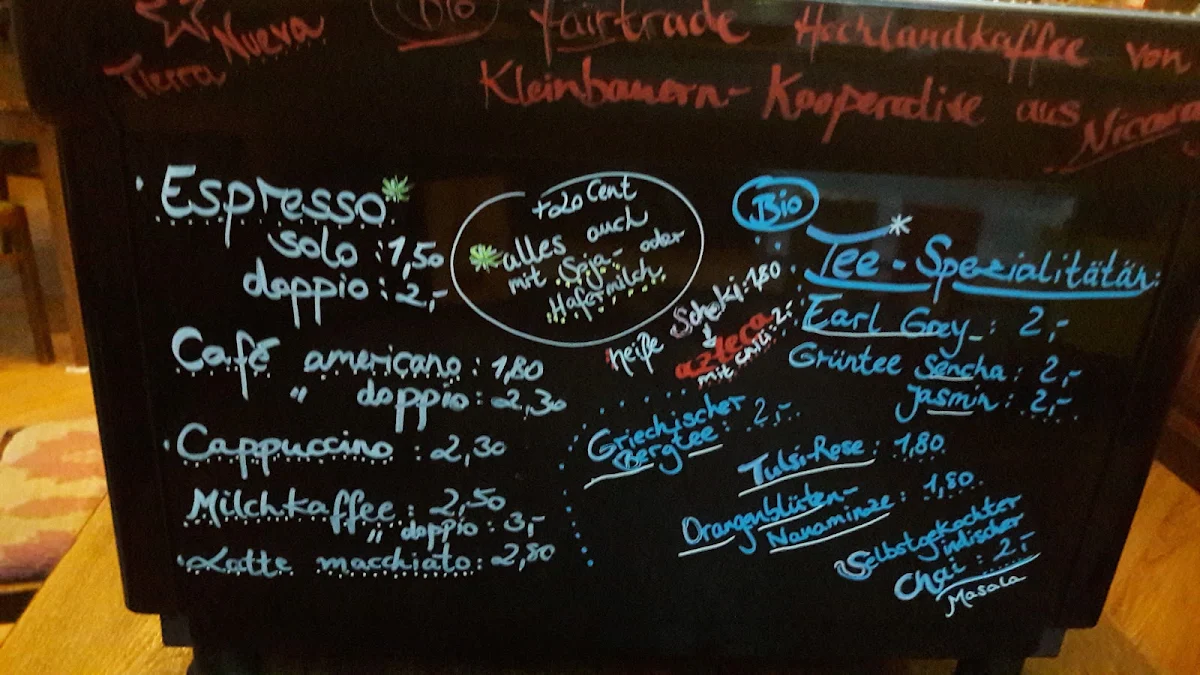 Tierra Nueva
Bio fairtrade Hochlandkaffee von
Kleinbauern-Kooperative aus
Espresso
solo : 1,50
doppio : 2,-
Café americano : 1,80
" doppio : 2,30
Cappuccino : 2,30
Milchkaffee : 2,50
" doppio : 3,-
Latte macchiato : 2,80
+20 Cent
alles auch
mit Soja- oder
Hafermilch
heiße Schoki : 1,80
azteca
mit Chili : 2,-
Bio
Tee-Spezialitätän :
Earl Grey : 2,-
Grüntee Sencha : 2,-
Jasmin : 2,-
Griechischer
Bergtee : 2,-
Tulsi-Rose : 1,80
Orangenblüten-
Nanaminze : 1,80
Selbstgekochter
indischer
Chai : 2,-
Masala